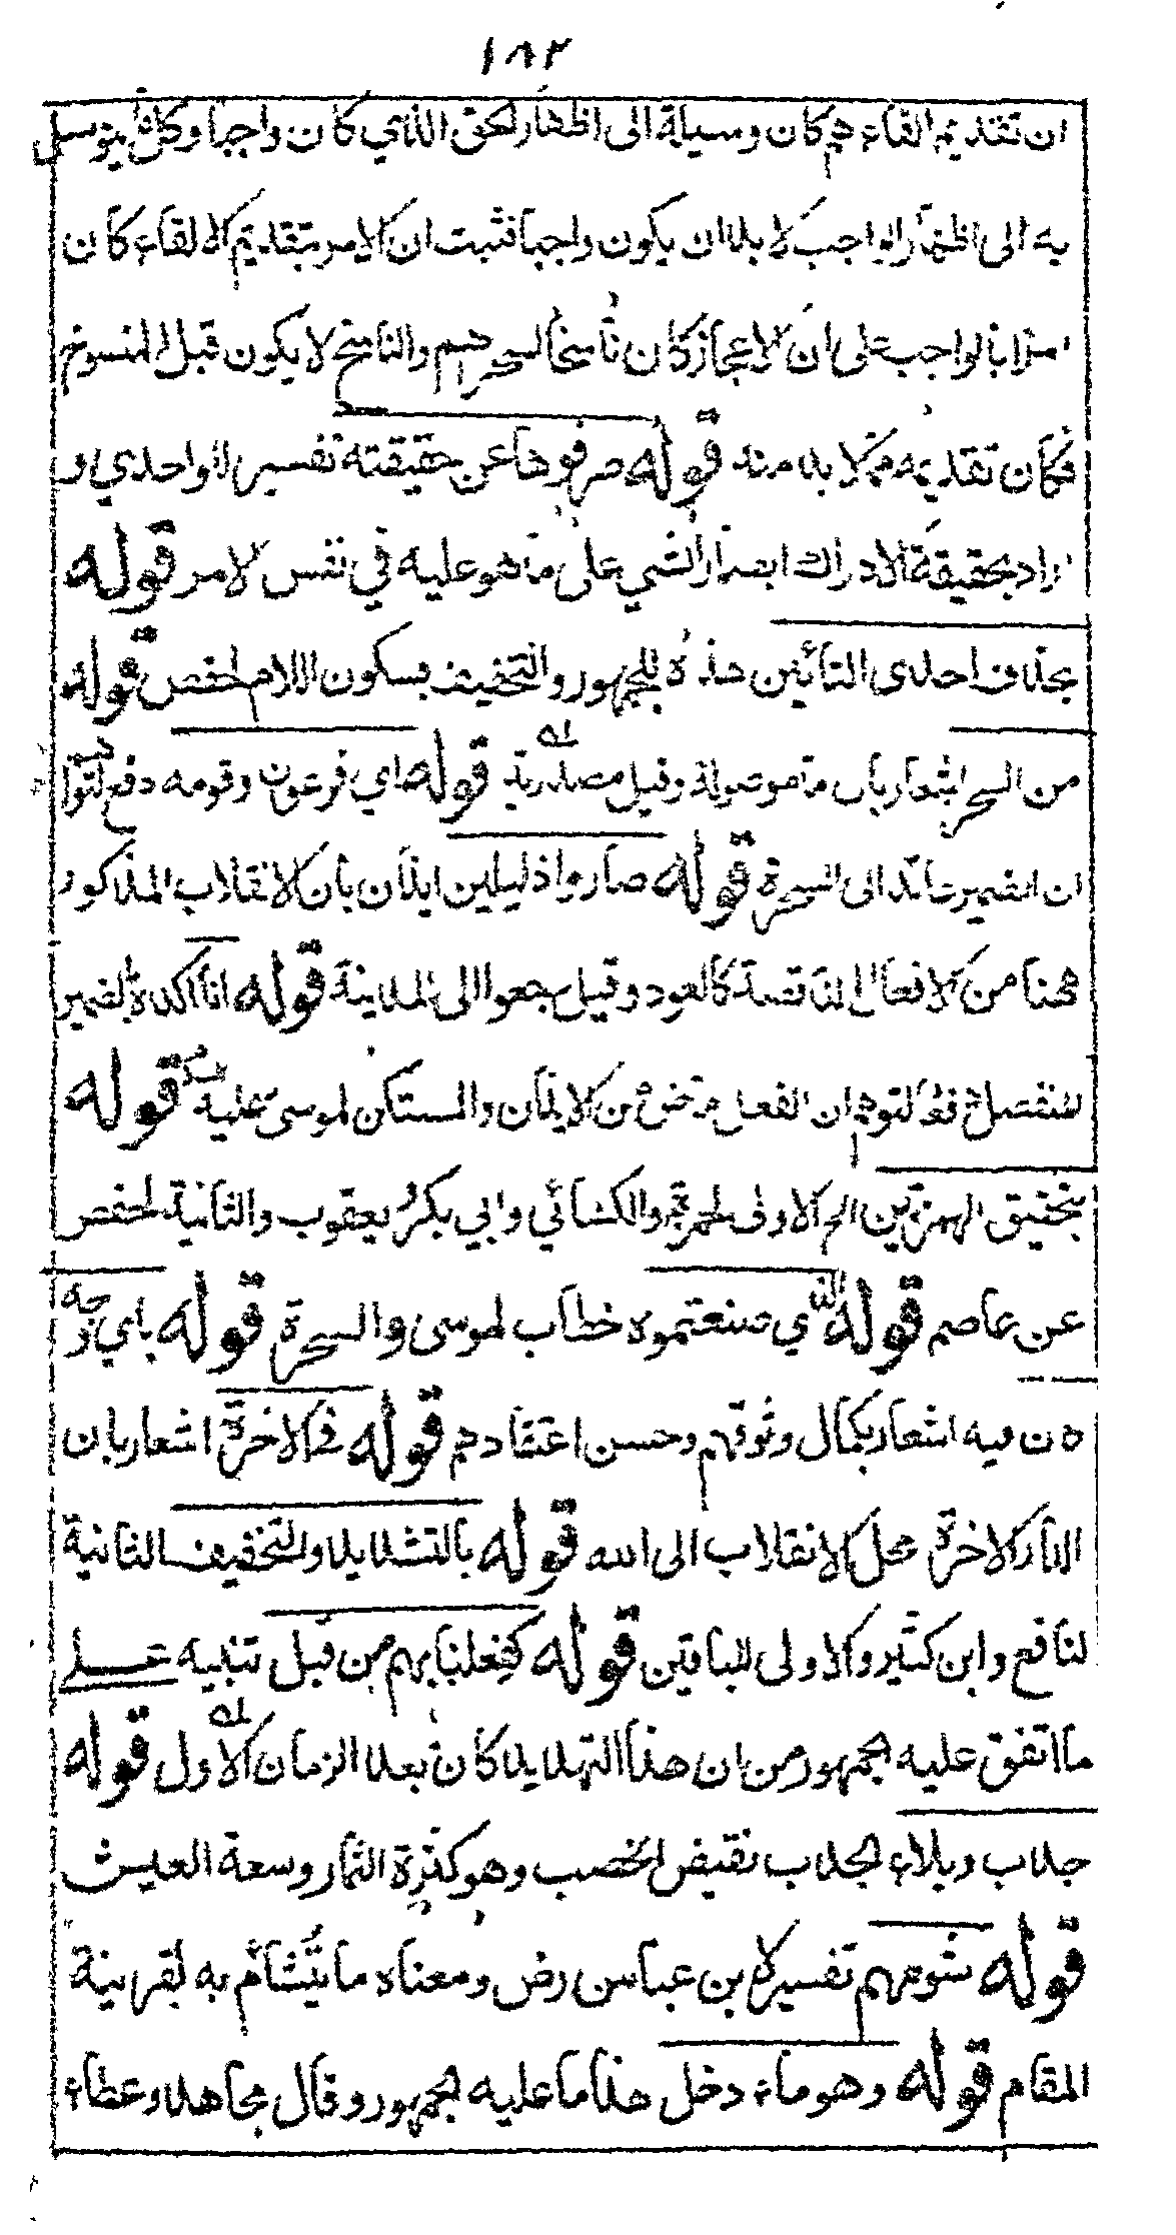 ١٨٢
ان تقديم القاءهم كان وسيلة الى اظهار الحق الذي كان واجبا وكل ما يتوسل
به الى اظهار الواجب لا بد ان يكون واجبا فثبت ان الامر بتقديم الالقاء كان
امرا بالواجب على ان الاعجاز كان ناسخا لسحرهم والناسخ لا يكون قبل المنسوخ
فكان تقديمه مما لا بد منه قوله صرفوها عن حقيقته تفسير للواحدي و
اراد بحقيقة الادراك ابصار الشي على ما هو عليه في نفس الامر قوله
بحذف احدى التائين هذه للجمهور والتخفيف بسكون اللام لحفص قوله
من السحر اشعار بان ما موصولة وقيل مصدرية قوله اي فرعون وقومه دفع لتوهم
ان الضمير عائد الى السحرة قوله صاروا ذليلين ايذان بان الانقلاب المذكور
ههنا من الافعال الناقصة كالعود وقيل رجعوا الى المدينة قوله انا اكده بالضمير
المنفصل دفعا لتوهم ان الفعل ماض من الايمان والمستكن لموسى عليه السلام قوله
بتحقيق الهمزتين الخ الاولى لحمزة والكسائي وابي بكر ويعقوب والثانية لحفص
عن عاصم قوله الذي صنعتموه خطاب لموسى والسحرة قوله باي وجه
كان فيه اشعار بكمال وثوقهم وحسن اعتقادهم قوله في الاخرة اشعار بان
الدار الاخرة محل الانقلاب الى الله قوله بالتشديد والتخفيف الثانية
لنافع وابن كثير والاولى للباقين قوله كفعلنا بهم من قبل تنبيه على
ما اتفق عليه الجمهور من ان هذا التهديد كان بعد الزمان الاول قوله
جدب وبلاء الجدب نقيض الخصب وهو كثرة الثمار وسعة العيش
قوله شومهم تفسير لابن عباس رض ومعناه ما يتشاءم به بقرينة
المقام قوله وهو ماء دخل هذا ما عليه الجمهور وقال مجاهد وعطاء